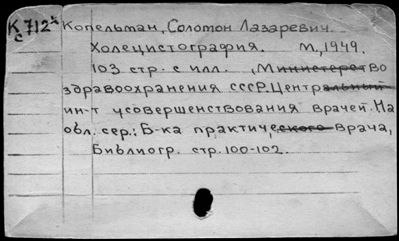 К 712 с Копельман, Соломон Лазаревич.
Холецистография. М., 1949.
103 стр. с илл. (Министерство
здравоохранения СССР. Центральный
ин-т усовершенствования врачей. На
обл. сер.: Б-ка практического врача,
Библиогр. стр. 100-102.